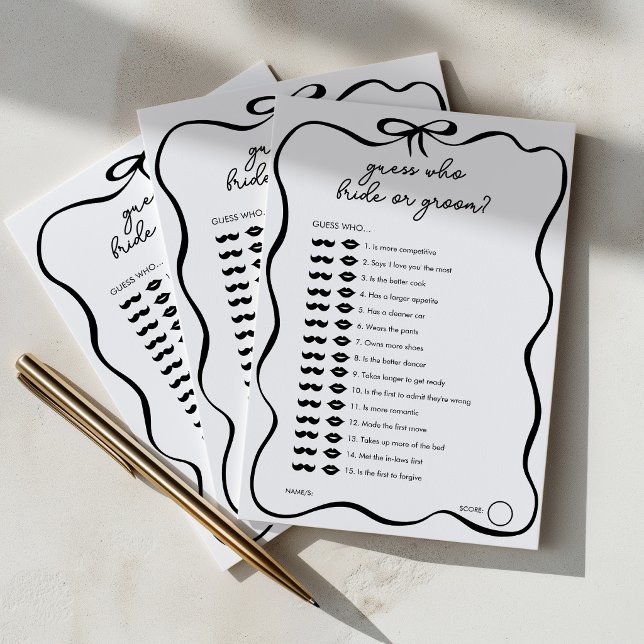 guess who
bride or groom?
GUESS WHO...
1. Is more competitive
2. Says 'I love you' the most
3. Is the better cook
4. Has a larger appetite
5. Has a cleaner car
6. Wears the pants
7. Owns more shoes
8. Is the better dancer
9. Takes longer to get ready
10. Is the first to admit they're wrong
11. Is more romantic
12. Made the first move
13. Takes up more of the bed
14. Met the in-laws first
15. Is the first to forgive
NAME/S:
SCORE:
gu
bride
GUESS WHO...
gue
bride
GUESS WHO...